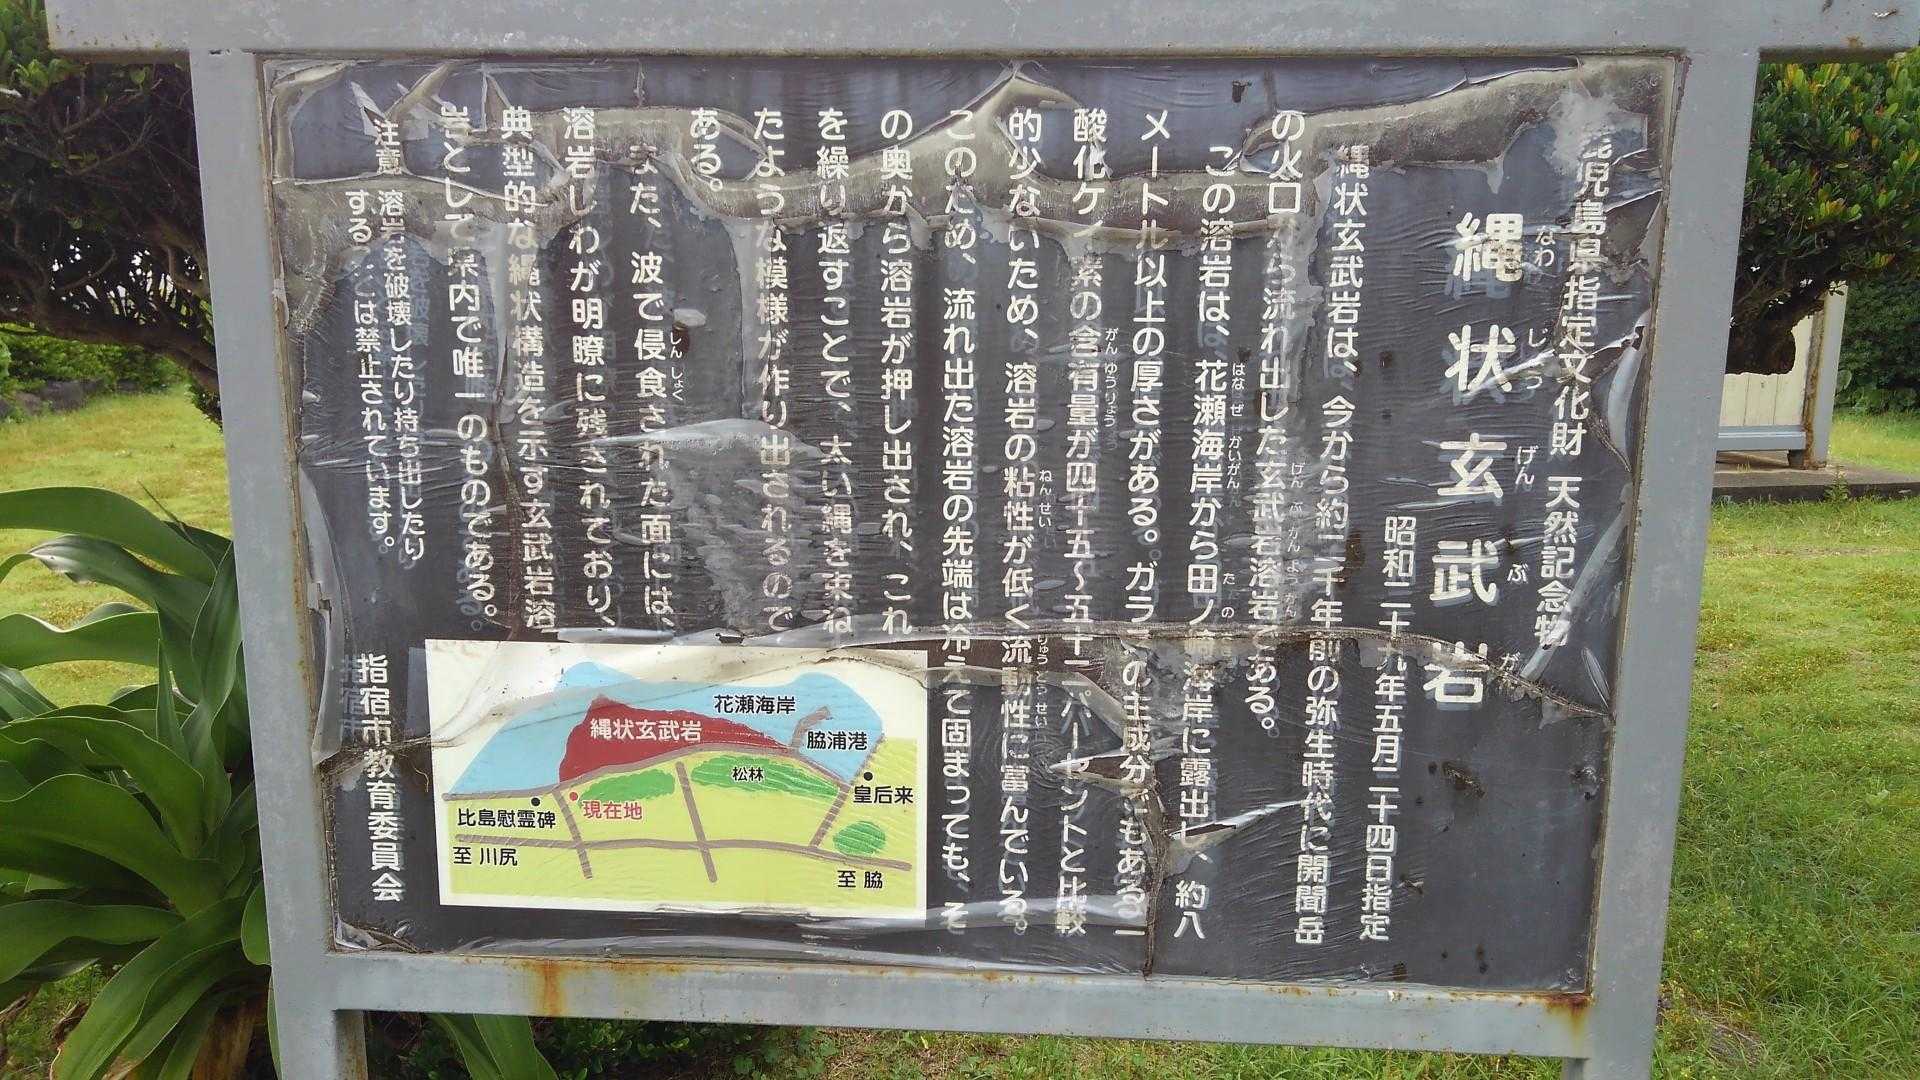 鹿児島県指定文化財 天然記念物
縄状玄武岩
なわ じょう げん ぶ がん
昭和二十九年五月二十四日指定
縄状玄武岩は、今から約二千年前の弥生時代に開聞岳
の火口から流れ出した玄武岩溶岩である。
この溶岩は、花瀬海岸から田ノ崎海岸に露出し、約八
メートル以上の厚さがある。ガラスの主成分でもある二
酸化ケイ素の含有量が四十五~五十二パーセントと比較
的少ないため、溶岩の粘性が低く流動性に富んでいる。
このため、流れ出た溶岩の先端は冷えて固まっても、そ
の奥から溶岩が押し出され、これ
を繰り返すことで、太い縄を束ね
たような模様が作り出されるので
ある。
また、波で侵食された面には、
溶岩じわが明瞭に残されており、
典型的な縄状構造を示す玄武岩溶
岩として県内で唯一のものである。
注意 溶岩を破壊したり持ち出したり
することは禁止されています。
指宿市教育委員会
花瀬海岸
縄状玄武岩
脇浦港
松林
皇后来
現在地
比島慰霊碑
至 川尻
至 脇